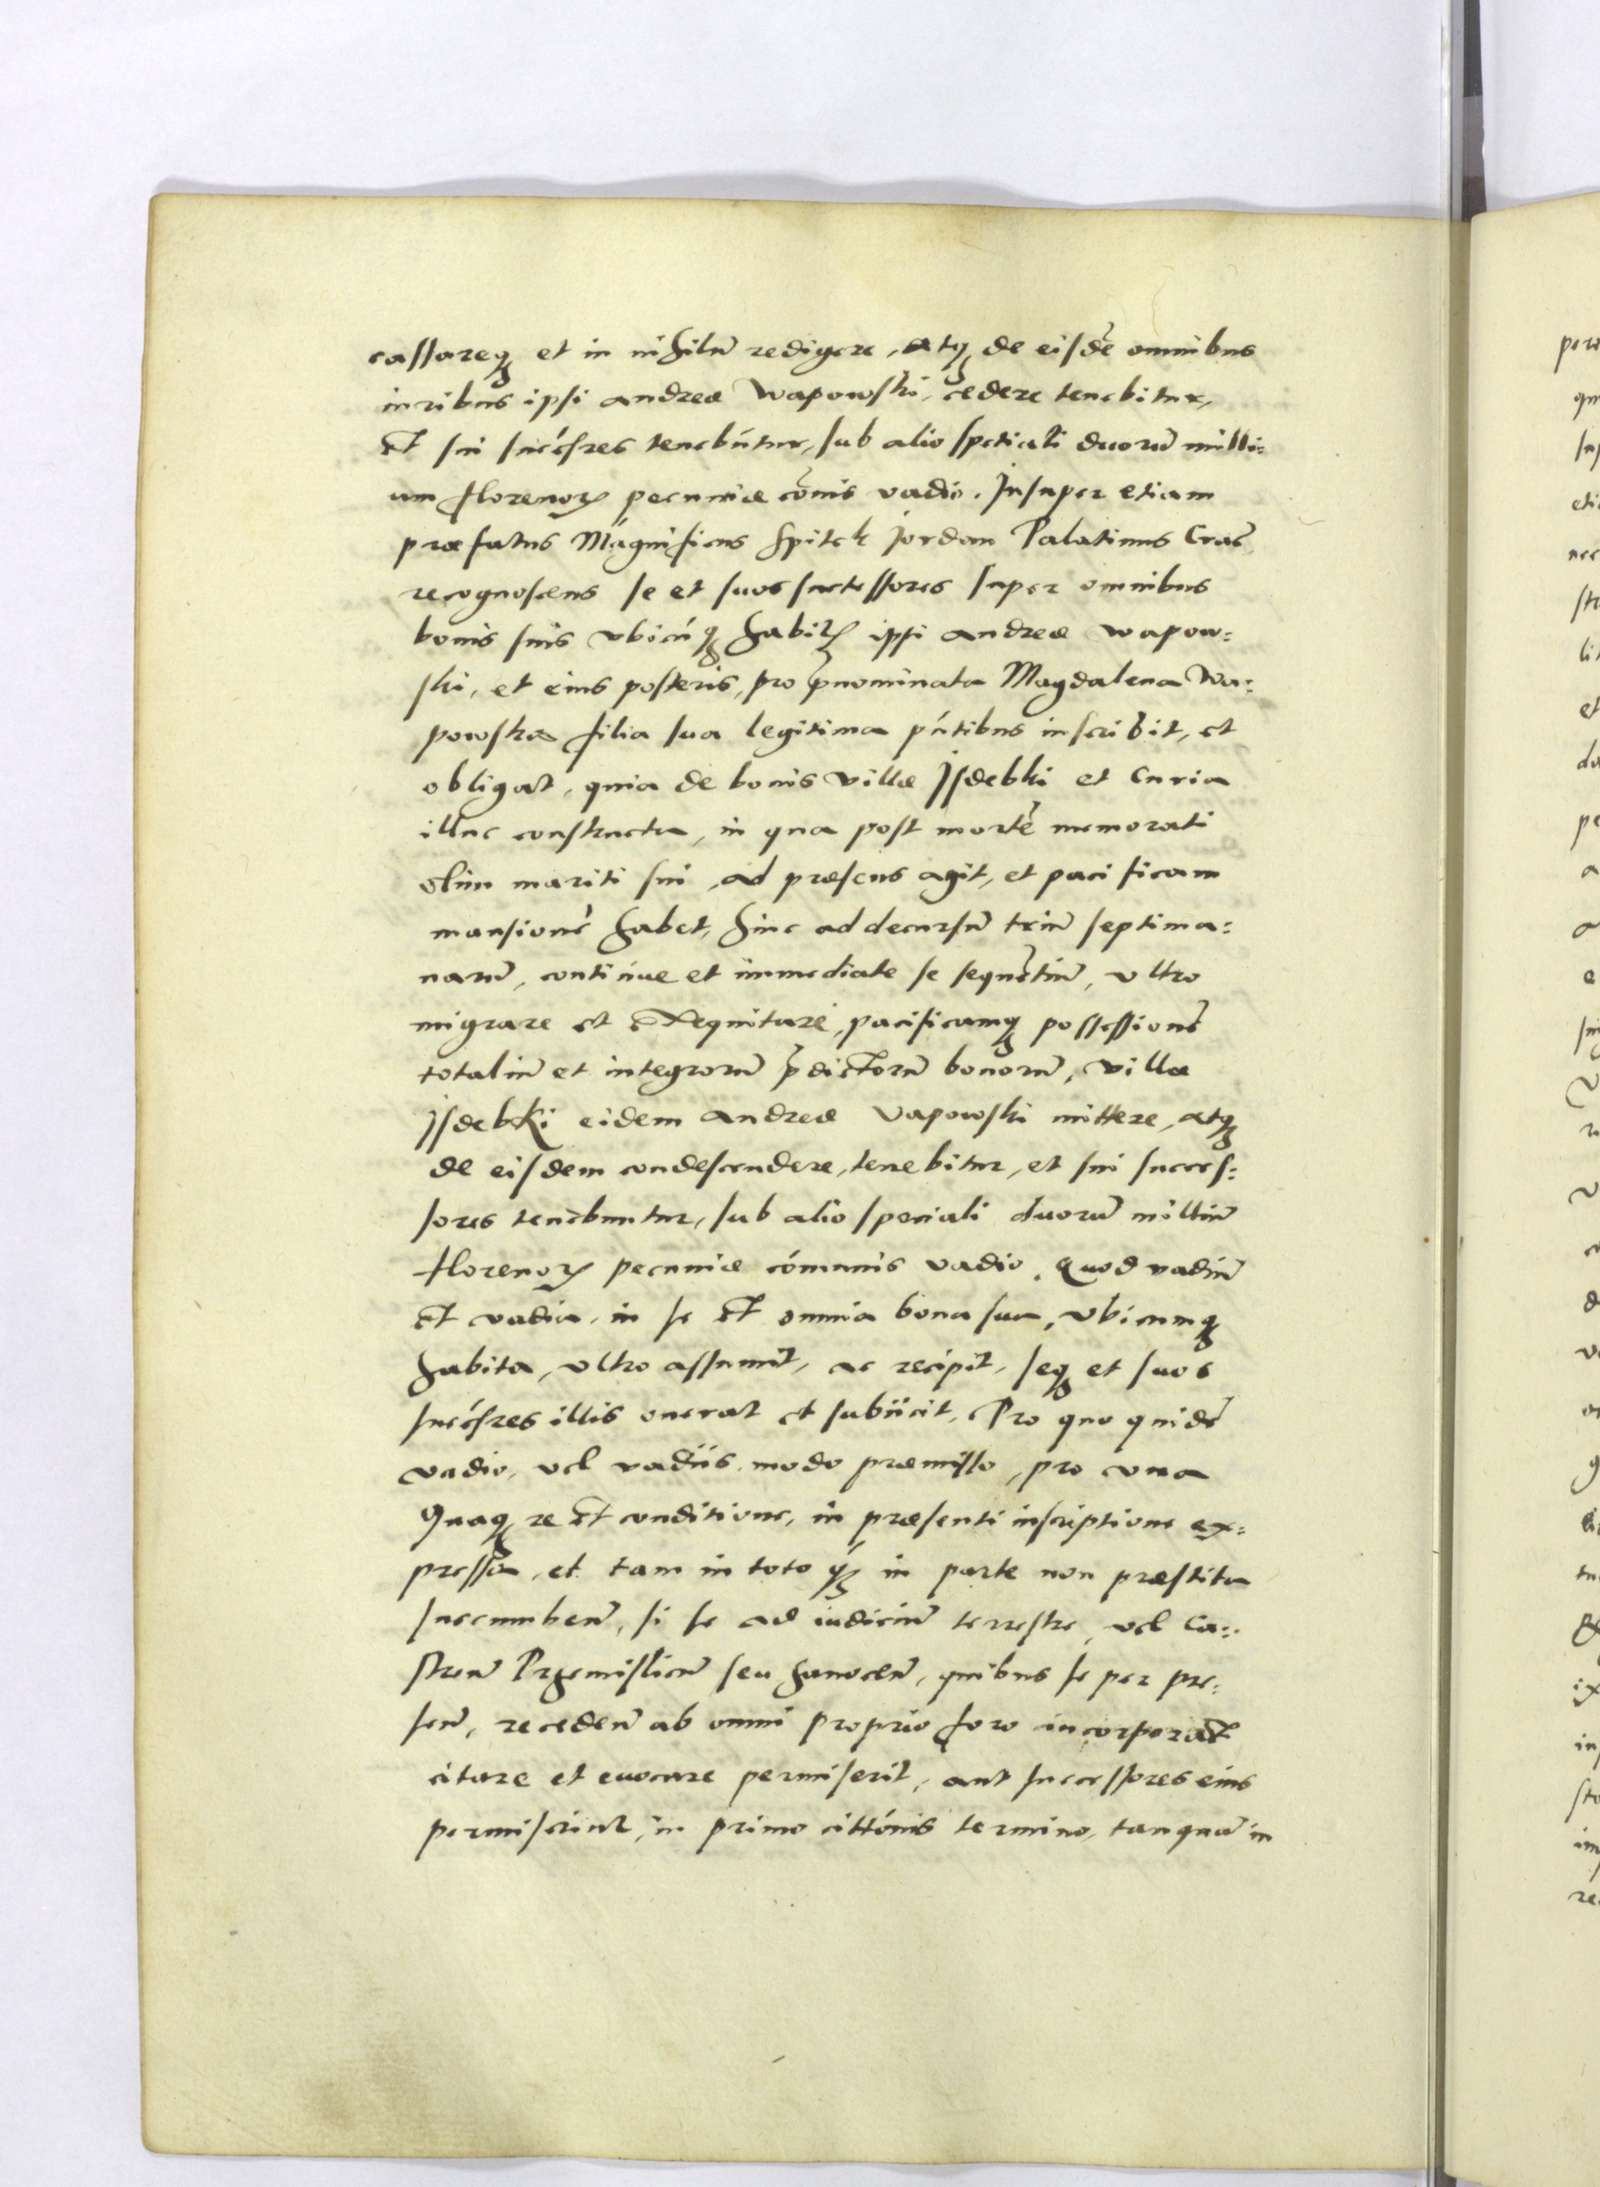 cassareq₃ et in nihilū redigere, atq₃ de eisdē omnibus
iuribus ipsi Andreæ Wapowski, cedere tenebitur,
Et sui succ̃sres tenebūtur, sub alio spetiali duorū milli:
um florenoꝝ pecuniæ cōnis vadio. Insuper etiam
præfatus Magnificus Spitek Jordan Palatinus Crac̄
recognoscens se et suos suctessores super omnibus
bonis suis vbicūq₃ habitꝭ ipsi Andreæ Wapow:
ski, et eius posteris, pro p̄nominata Magdalena Wa:
powska filia sua legitima pn̄tibus inscribit, et
obligat, quia de bonis villæ Jsdebki et Curia
illuc constructa, in qua post mortē memorati
olim mariti sui, ad præsens agit, et pacificam
mansionē habet, hinc ad decursū triū septima:
narū, continue et immediate se sequētiū, vltro
migrare et exequitare, pacificamq₃ possessionē
totaliū et integrorū p̄dictorū bonorū, villæ
Jsdebki eidem Andreæ Vapowski mittere, atq₃
de eisdem condescendere, tenebitur, et sui succes:
sores tenebuntur, sub alio speciali duorū milliū
florenoꝝ pecuniæ cōmunis vadio. Quod vadiū
Et vadia, in se Et omnia bona sua, vbicumq₃
habita, vltro assumit, ac recipit, seq₃ et suos
succ̃sres illis onerat et subiicit, Pro quo quidē
vadio, vel vadiis modo præmisso, pro vna
Quaq₃ re Et conditione, in præsenti inscriptione ex:
pressa, et tam in toto q₃ in parte non præstita
succumben̄, si se ad iudiciū terrestre, vel Ca:
stren̄ Przemislien̄ seu Sanocen̄, quibus se per pre:
sen̄, receden̄ ab omni proprio foro incorporat
citare et euocare permiserit, aut successores eius
permiserint, in primo cittōnis termino, tanquā in